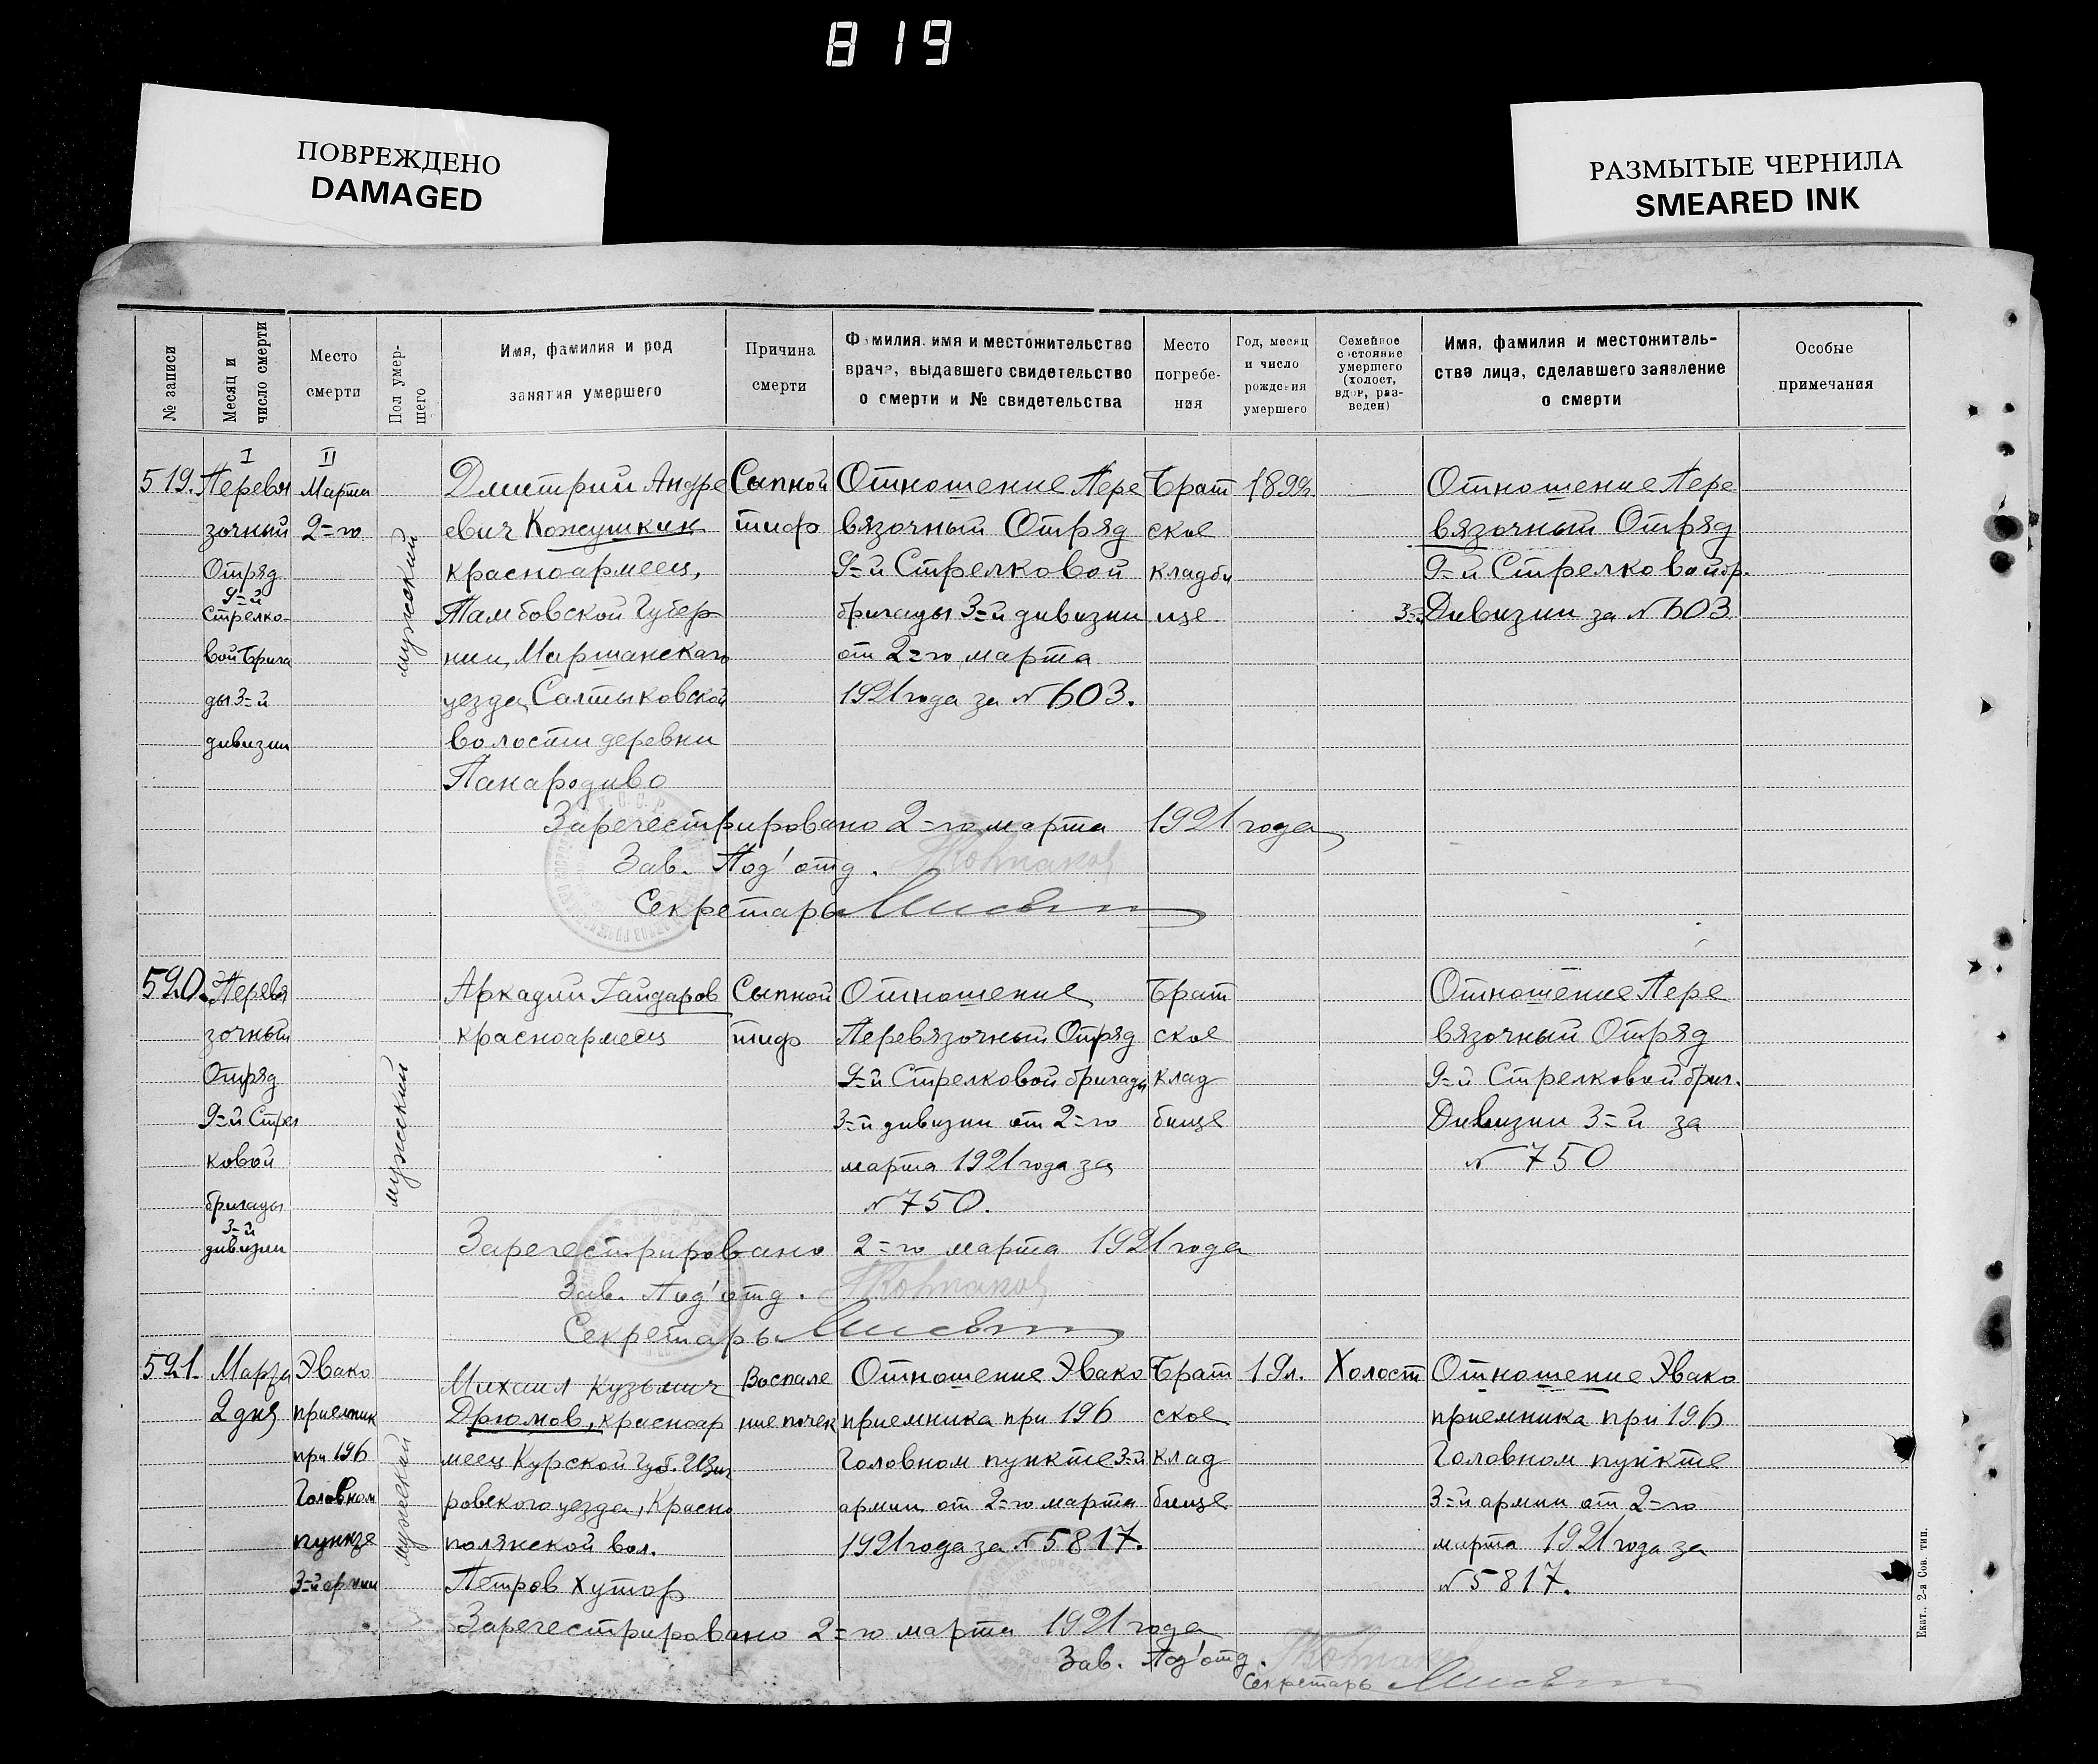 819
ПОВРЕЖДЕНО
DAMAGED
РАЗМЫТЫЕ ЧЕРНИЛА
SMEARED INK
№ записи
Месяц и
число смерти
Место
смерти
Пол умер-
шего
Имя, фамилия и род
занятия умершего
Причина
смерти
Фамилия. имя и местожительство
врача, выдавшего свидетельство
о смерти и № свидетельства
Место
погребе-
ния
Год, месяц
и число
рождения
умершего
Семейное
состояние
умершего
(холост,
вдов, раз-
веден)
Имя, фамилия и местожитель-
ство лица, сделавшего заявление
о смерти
Особые
примечания
519.
I
Перевя
зочный
Отряд
9=й
Стрелко-
вой Брига
ды 3=й
дивизии
II
Марта
2=го
мужский
Дмитрий Андре
евич Кожушкин
красноармеец,
Тамбовской Губер
нии, Маршанскаго
уезда, Салтыковской
волости деревни
Панародиво
Сыпной
тиф
Отношение Пере
вязочный Отряд
9=й Стрелковой
бригады 3=й дивизии
от 2=го марта
1921 года за № 603.
Брат
ское
кладби
ще
1899
Отношение Пере
вязочный Отряд
9=й Стрелковой бр.
3= Дивизии за № 603
Зарегестрировано 2=го марта 1921 года
Зав. Под'отд.
Секретарь
520.
Перевя
зочный
Отряд
9=й Стрел
ковой
бригады
3=й
дивизии
мужский
Аркадий Гайдаров
красноармеец
Сыпной
тиф
Отношение
Перевязочный Отряд
9=й Стрелковой бригады
3=й дивизии от 2=го
марта 1921 года за
№ 750.
Брат
ское
клад
бище
Отношение Пере
вязочный Отряд
9=й Стрелковой бриг.
Дивизии 3=й за
№ 750
Зарегестрировано 2=го марта 1921 года
Зав. Под'отд.
Секретарь
521.
Марта
2 дня
Эвако
приемник
при 196
Головном
пункте
3=й армии
мужский
Михаил Кузьмич
Дрюмов, красноар
меец Курской Губ.
ровского уезда, Красно
полянской вол.
Петров хутор
Воспале
ние почек
Отношение Эвако
приемника при 196
Головном пункте 3=й
армии от 2=го марта
1921 года за № 5817.
Брат
ское
клад
бище
19л.
Холост
Отношение Эвако
приемника при 196
Головном пункте
3=й армии от 2=го
марта 1921 года за
№ 5817.
Зарегестрировано 2=го марта 1921 года
Зав. Под'отд.
Секретарь
Екат., 2-я Сов. тип.